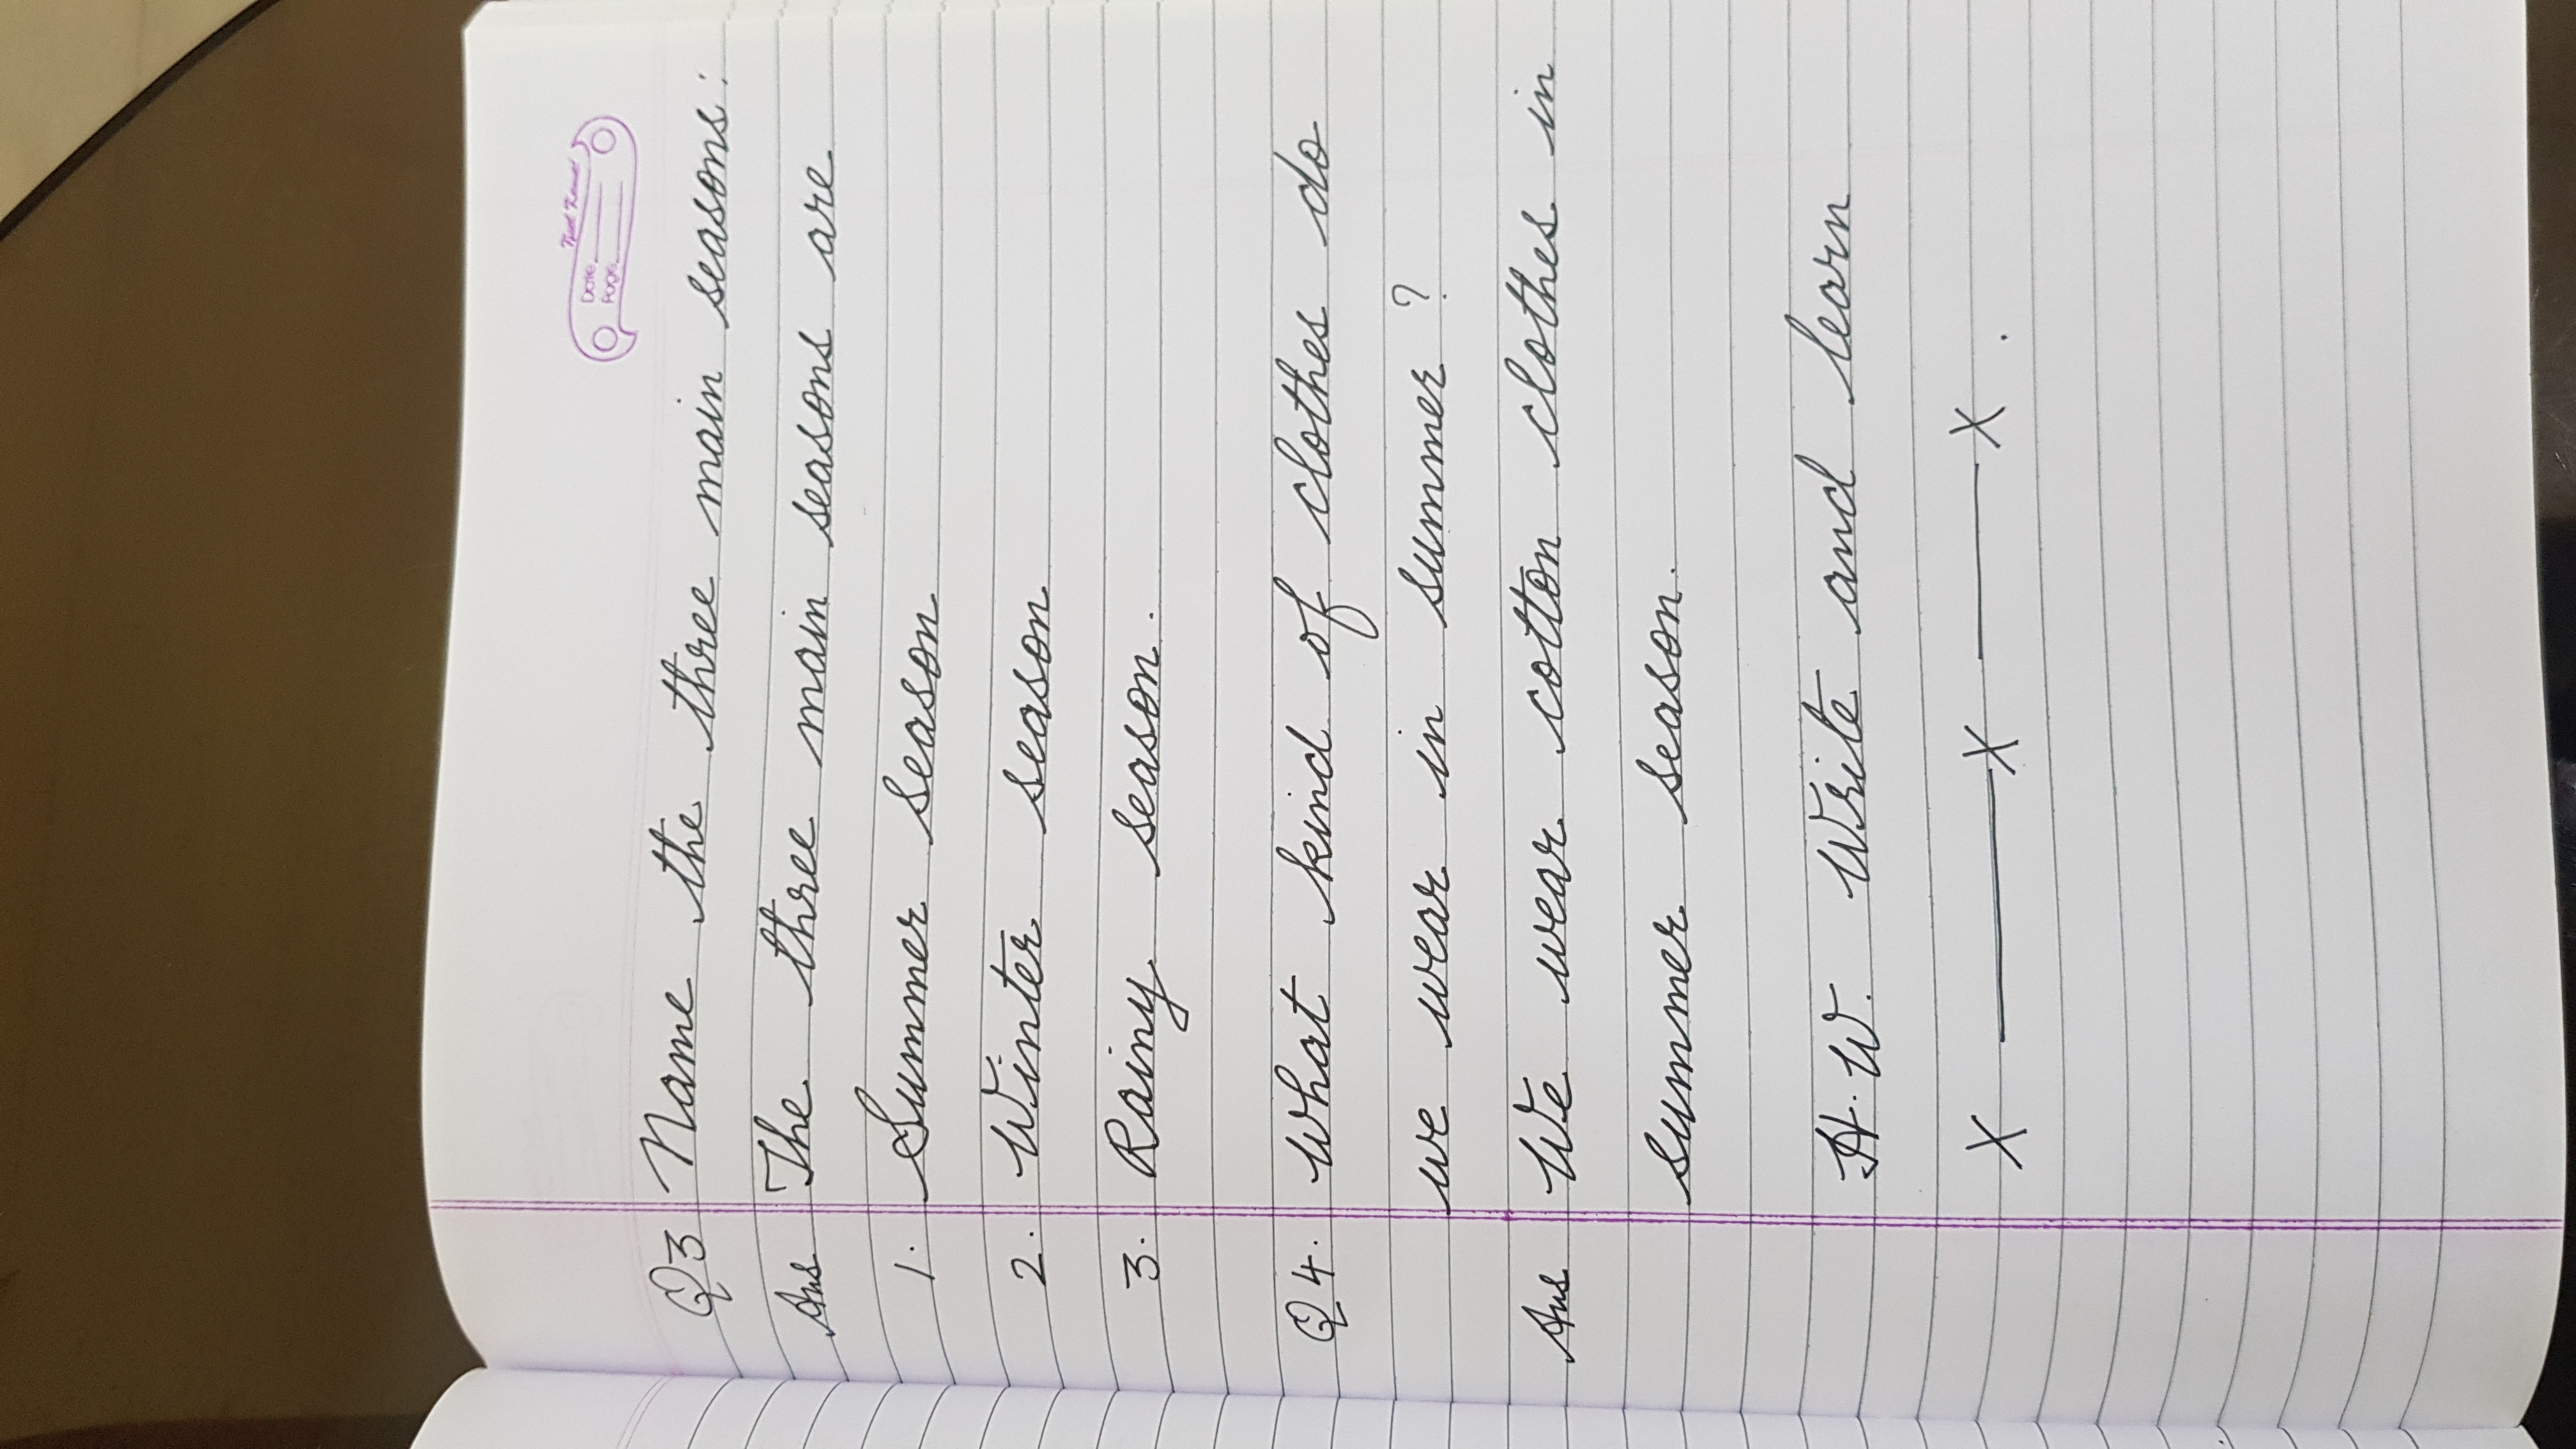 Date
Page
Q3 Name the three main seasons:
Ans The three main seasons are
1. Summer season
2. Winter season
3. Rainy season.
Q4. What kind of clothes do
we wear in summer ?
Ans We wear cotton clothes in
summer season.
H.W. Write and learn
X — X — X .